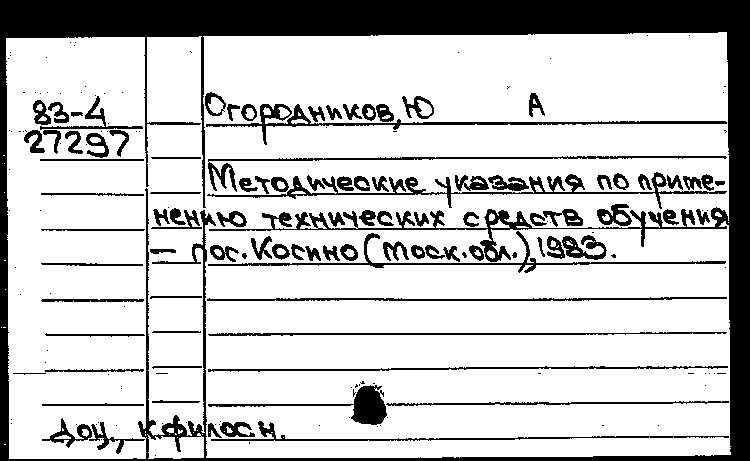 83-4
Огородников, Ю А
27297
Методические указания по приме-
нению технических средств обучения
— пос. Косино (Моск. обл.), 1983.
Доц., к.филос.н.